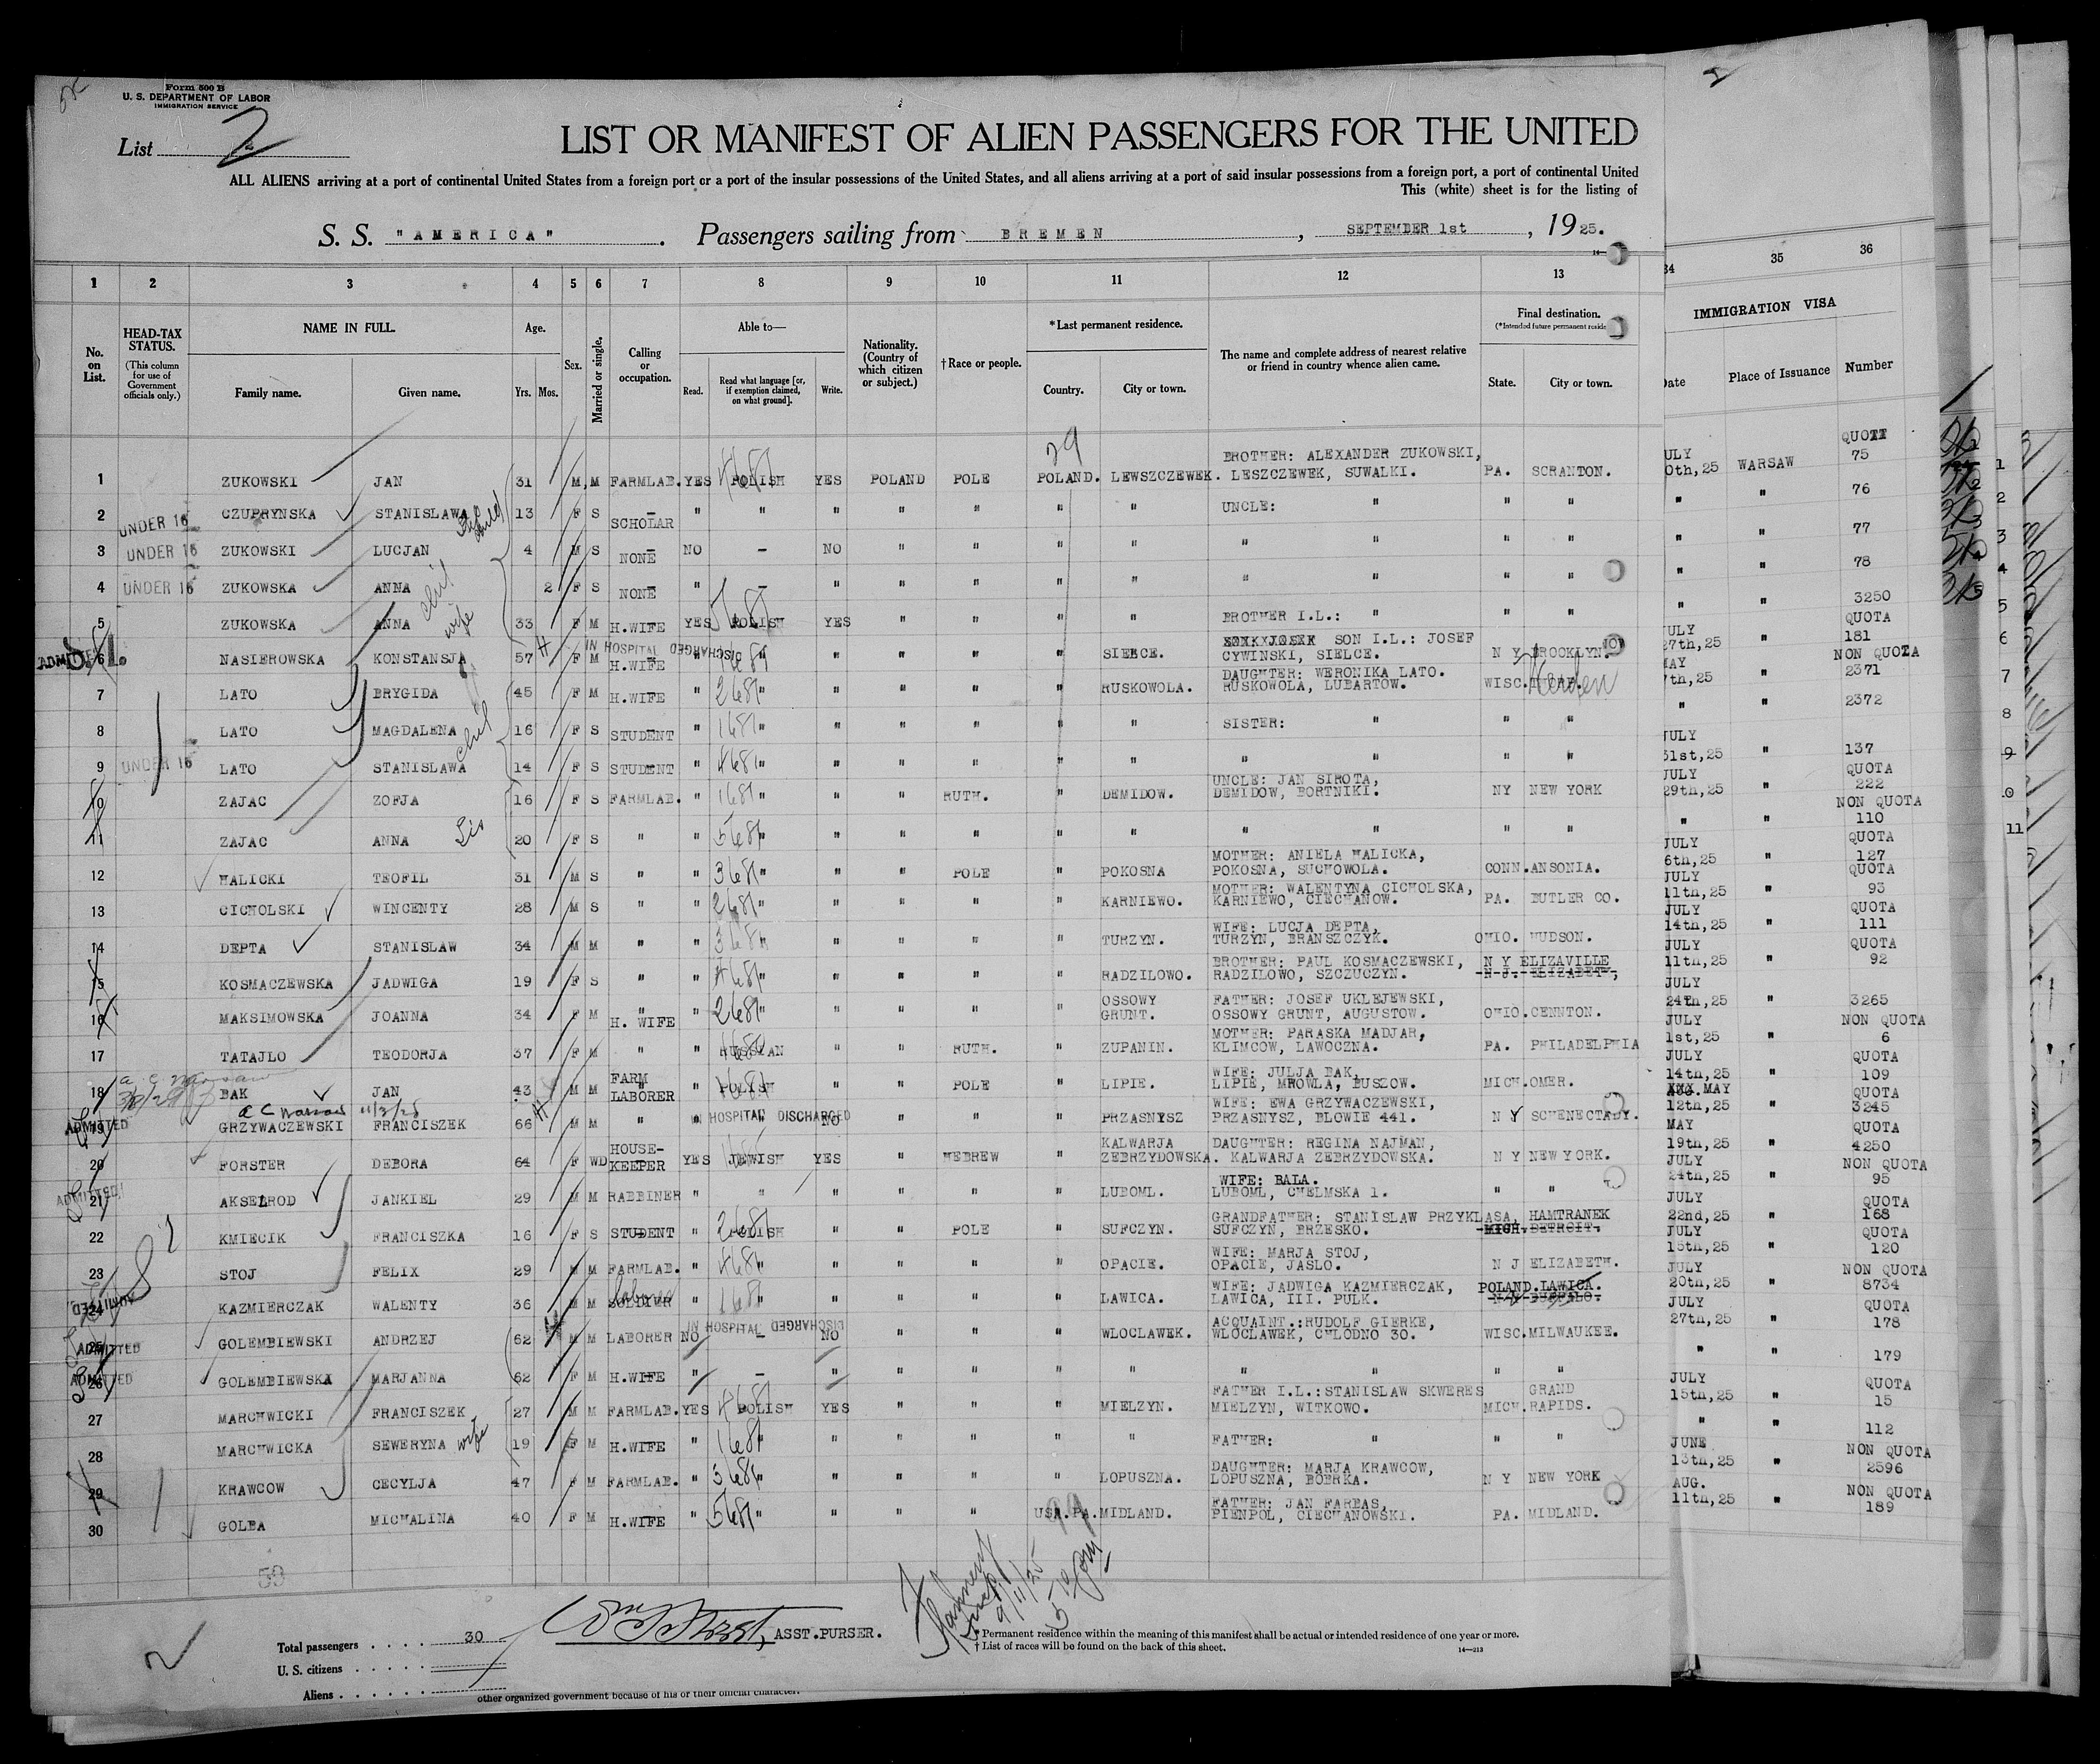 Form 500 B
U. S. DEPARTMENT OF LABOR
IMMIGRATION SERVICE
List 2
LIST OR MANIFEST OF ALIEN PASSENGERS FOR THE UNITED
ALL ALIENS arriving at a port of continental United States from a foreign port or a port of the insular possessions of the United States, and all aliens arriving at a port of said insular possessions from a foreign port, a port of continental United
This (white) sheet is for the listing of
S. S. "AMERICA". Passengers sailing from BREMEN, SEPTEMBER 1st, 1925.
1 2 3 4 5 6 7 8 9 10 11 12 13 34 35 36
No. on List.
HEAD-TAX STATUS. (This column for use of Government officials only.)
NAME IN FULL. Family name. Given name.
Age. Yrs. Mos.
Sex.
Married or single.
Calling or occupation.
Able to— Read. Read what language [or, if exemption claimed, on what ground]. Write.
Nationality. (Country of which citizen or subject.)
† Race or people.
*Last permanent residence. Country. City or town.
The name and complete address of nearest relative or friend in country whence alien came.
Final destination. (*Intended future permanent reside
State. City or town.
IMMIGRATION VISA
Date Place of Issuance Number
QUOTA
1 ZUKOWSKI JAN 31 M M FARMLAB. YES POLISH YES POLAND POLE POLAND. LEWSZCZEWEK. BROTHER: ALEXANDER ZUKOWSKI, LESZCZEWEK, SUWALKI. PA. SCRANTON. JULY 0th,25 WARSAW 75
2 UNDER 16 CZUPRYNSKA STANISLAWA 13 F S SCHOLAR " " " " " " " UNCLE: " " " " " 76
3 UNDER 16 ZUKOWSKI LUCJAN 4 M S NONE NO - NO " " " " " " " " " " 77
4 UNDER 16 ZUKOWSKA ANNA 2 F S NONE " - " " " " " " " " " " " 78
5 ZUKOWSKA ANNA wife 33 F M H.WIFE YES POLISH YES " " " " BROTHER I.L.: " " " " " 3250
6 ADMITTED NASIEROWSKA KONSTANSJA 57 F M H.WIFE IN HOSPITAL DISCHARGED " " " " SIELCE. SON I.L.: JOSEF CYWINSKI, SIELCE. N Y BROOKLYN. JULY 27th,25 " QUOTA 181
7 LATO BRYGIDA 45 F M H.WIFE " " " " " " RUSKOWOLA. DAUGHTER: WERONIKA LATO. RUSKOWOLA, LUBARTOW. WISC. MAY 7th,25 " NON QUOTA 2371
8 LATO MAGDALENA 16 F S STUDENT " " " " " " " SISTER: " " " " " 2372
9 UNDER 16 LATO STANISLAWA 14 F S STUDENT " " " " " " " " " " " JULY 31st,25 " 137
10 ZAJAC ZOFJA 16 F S FARMLAB. " " " " RUTH. " DEMIDOW. UNCLE: JAN SIROTA, DEMIDOW, BORTNIKI. NY NEW YORK JULY 29th,25 " QUOTA 222
11 ZAJAC ANNA Sis 20 F S " " " " " " " " " " " " " " NON QUOTA 110
12 HALICKI TEOFIL 31 M S " " " " " POLE " POKOSNA MOTHER: ANIELA HALICKA, POKOSNA, SUCHOWOLA. CONN. ANSONIA. JULY 6th,25 " QUOTA 127
13 CICHOLSKI WINCENTY 28 M S " " " " " " " KARNIEWO. MOTHER: WALENTYNA CICHOLSKA, KARNIEWO, CIECHANOW. PA. BUTLER CO. JULY 11th,25 " QUOTA 93
14 DEPTA STANISLAW 34 M M " " " " " " " TURZYN. WIFE: LUCJA DEPTA, TURZYN, BRANSZCZYK. OHIO. HUDSON. JULY 14th,25 " QUOTA 111
15 KOSMACZEWSKA JADWIGA 19 F S " " " " " " " RADZILOWO. BROTHER: PAUL KOSMACZEWSKI, RADZILOWO, SZCZUCZYN. N Y ELIZAVILLE N.J. ELIZABETH, JULY 11th,25 " QUOTA 92
16 MAKSIMOWSKA JOANNA 34 F M H. WIFE " " " " " " OSSOWY GRUNT. FATHER: JOSEF UKLEJEWSKI, OSSOWY GRUNT, AUGUSTOW. OHIO. CENNTON. JULY 24th,25 " 3265
17 TATAJLO TEODORJA 37 F M " " RUSSIAN " " RUTH. " ZUPANIN. MOTHER: PARASKA MADJAR, KLIMCOW, LAWOCZNA. PA. PHILADELPHIA JULY 1st,25 " NON QUOTA 6
18 BAK JAN 43 M M FARM LABORER " POLISH " " POLE " LIPIE. WIFE: JULJA BAK, LIPIE, MROWLA, BUSZOW. MICH. OMER. JULY 14th,25 " QUOTA 109
a c Warsaw 11/3/28
19 ADMITTED GRZYWACZEWSKI FRANCISZEK 66 M M " IN HOSPITAL DISCHARGED NO " " " PRZASNYSZ WIFE: EWA GRZYWACZEWSKI, PRZASNYSZ, BLOWIE 441. N Y SCHENECTADY. MAY 12th,25 " QUOTA 3245
20 FORSTER DEBORA 64 F WD HOUSE-KEEPER YES JEWISH YES " HEBREW " KALWARJA ZEBRZYDOWSKA. DAUGHTER: REGINA NAJMAN, KALWARJA ZEBRZYDOWSKA. N Y NEW YORK. MAY 19th,25 " QUOTA 4250
21 ADMITTED AKSELROD JANKIEL 29 M M RABBINER " " " " " " LUBOML. WIFE: BALA. LUBOML, CHELMSKA 1. " " JULY 24th,25 " NON QUOTA 95
22 KMIECIK FRANCISZKA 16 F S STUDENT " POLISH " " POLE " SUFCZYN. GRANDFATHER: STANISLAW PRZYKLASA, SUFCZYN, BRZESKO. HAMTRANEK MICH. DETROIT. JULY 22nd,25 " QUOTA 168
23 STOJ FELIX 29 M M FARMLAB. " " " " " " OPACIE. WIFE: MARJA STOJ, OPACIE, JASLO. N J ELIZABETH. JULY 15th,25 " QUOTA 120
24 ADMITTED KAZMIERCZAK WALENTY 36 M M SOLDIER laborer " " " " " " LAWICA. WIFE: JADWIGA KAZMIERCZAK, LAWICA, III. PULK. POLAND. LAWICA. N.Y. BUFFALO. JULY 20th,25 " NON QUOTA 8734
25 ADMITTED GOLEMBIEWSKI ANDRZEJ 62 M M LABORER NO IN HOSPITAL DISCHARGED - NO " " " WLOCLAWEK. ACQUAINT.: RUDOLF GIERKE, WLOCLAWEK, CHLODNO 30. WISC. MILWAUKEE. JULY 27th,25 " QUOTA 178
26 ADMITTED GOLEMBIEWSKA MARJANNA 62 F M H.WIFE " - " " " " " " " " " " " 179
27 MARCHWICKI FRANCISZEK 27 M M FARMLAB. YES POLISH YES " " " MIELZYN. FATHER I.L.: STANISLAW SKWERES MIELZYN, WITKOWO. MICH. GRAND RAPIDS. JULY 15th,25 " QUOTA 15
28 MARCHWICKA SEWERYNA wife 19 F M H.WIFE " " " " " " " FATHER: " " " " " 112
29 KRAWCOW CECYLJA 47 F M FARMLAB. " " " " " " LOPUSZNA. DAUGHTER: MARJA KRAWCOW, LOPUSZNA, BOBRKA. N Y NEW YORK JUNE 13th,25 " NON QUOTA 2596
30 GOLBA MICHALINA 40 F M H.WIFE " " " " " USA.PA. MIDLAND. FATHER: JAN FARBAS, PIENPOL, CIECHANOWSKI. PA. MIDLAND. AUG. 11th,25 " NON QUOTA 189
59
Total passengers . . . . 30
U. S. citizens . . . . .
Aliens . . . . . .
ASST. PURSER.
9/11/25
* Permanent residence within the meaning of this manifest shall be actual or intended residence of one year or more.
† List of races will be found on the back of this sheet.
14—213
other organized government because of his or their official character.